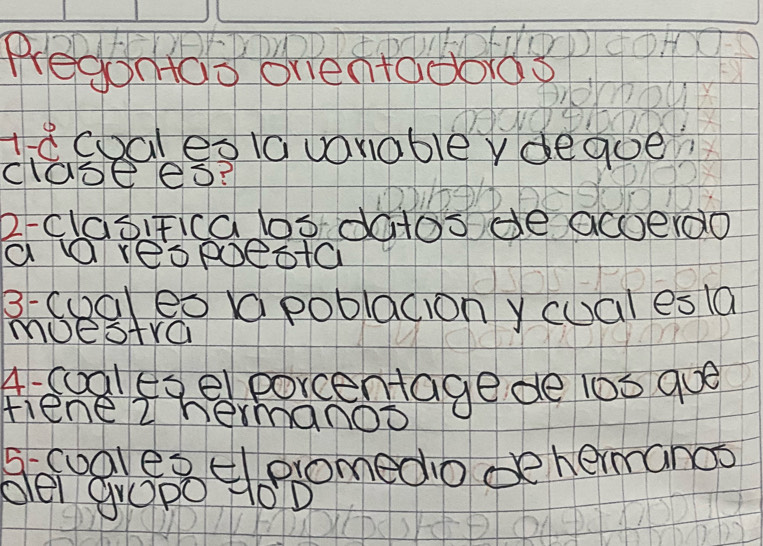 Pregontas orientadoras
1-¿ cual es la variable y de que
clase es?
2-clasifica los datos de acoerdo
a la respoesta
3-cual es la poblacion y cual es la
moestra
4-coal es el porcentage de los que
tiene 2 hermanos
5-cual es el promedio de hermanos
del gropo 10°D